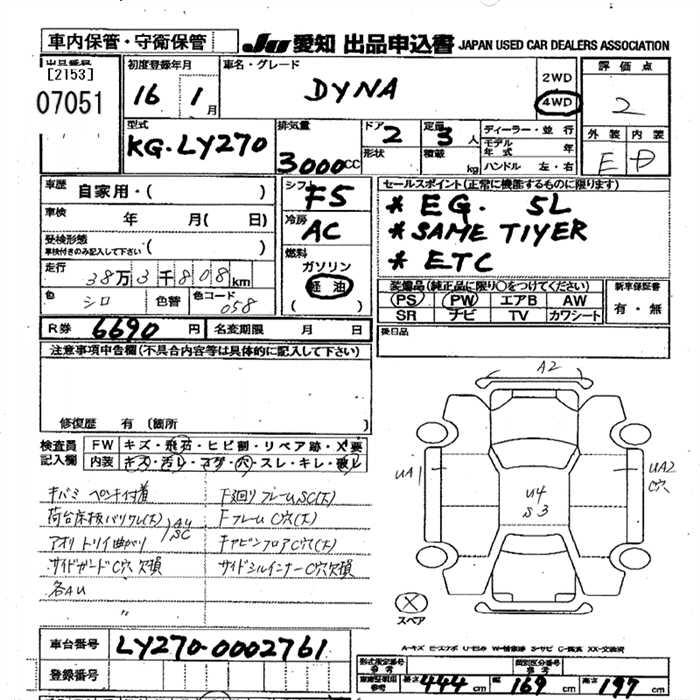 車内保管・守衛保管 JU 愛知 出品申込書 JAPAN USED CAR DEALERS ASSOCIATION
出品番号 [2153] 07051
初度登録年月 16 1月
車名・グレード DYNA
2WD
4WD
評価点 2
外装 内装
E D
型式 KG-LY270
排気量 3000cc
ドア 2 形状
定員 3人 積載 kg
ディーラー・並行
モデル年式 年
ハンドル 左・右
車歴 自家用・( )
車検 年 月( 日)
受検形態 車検付きのみ記入して下さい ( )
走行 38万3千808km
色 シロ 色替 色コード 058
シフト F5
冷房 AC
燃料
ガソリン
軽油
( )
セールスポイント(正常に機能するものに限ります)
* EG. 5L
* SAME TIYER
* ETC
装備品(純正品に限り○をつけてください)
PS PW エアB AW
SR ナビ TV カワシート
新車保証書
有・無
後日品
R券 6690円 名変期限 月 日
注意事項申告欄(不具合内容等は具体的に記入して下さい)
修復歴 有 (箇所 )
検査員記入欄
FW キズ・飛石・ヒビ割・リペア跡・X要
内装 キズ・汚レ・コゲ・穴・スレ・キレ・破レ
キバミ ペンキ付着
荷台床板バリワレ(大)
アオリ トリイ曲がり
AU
SC
サイドガードC穴欠損
各AU
〃
F廻リフレームSC(大)
FフレームC穴(大)
キャビンフロアC穴(大)
サイドシルインナーC穴欠損
A2
UA1
UA2
C穴
U4
S3
スペア
A-キズ E-エクボ U-凹み W-補修跡 S-サビ C-腐食 XX-交換済
車台番号 LY270-0002761
登録番号
形式指定番号 参考
類別区分番号 参考
長さ 444cm 幅 169cm 高さ 197cm